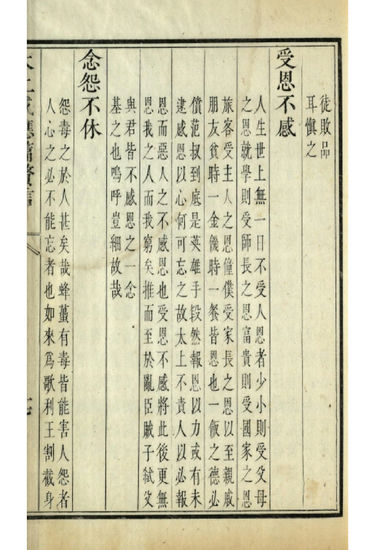 徒敗品
耳慎之
受恩不感
人生世上無一日不受人恩者少小則受父母
之恩就學則受師長之恩富貴則受國家之恩
旅客受主人之恩僮僕受家長之恩以至親戚
朋友貧時一金饑時一餐皆恩也一飯之德必
償范叔到底是英雄手段然報恩以力或有未
逮感恩以心何可忘之故太上不責人以必報
恩而惡人之不感恩也受恩不感將此後更無
恩我之人而我窮矣推而至於亂臣賊子弒父
與君皆不感恩之一念
基之也嗚呼豈細故哉
念怨不休
怨毒之於人甚矣哉蜂蠆有毒皆能害人怨者
人心之必不能忘者也如來爲歌利王割截身
太上感應篇贊言